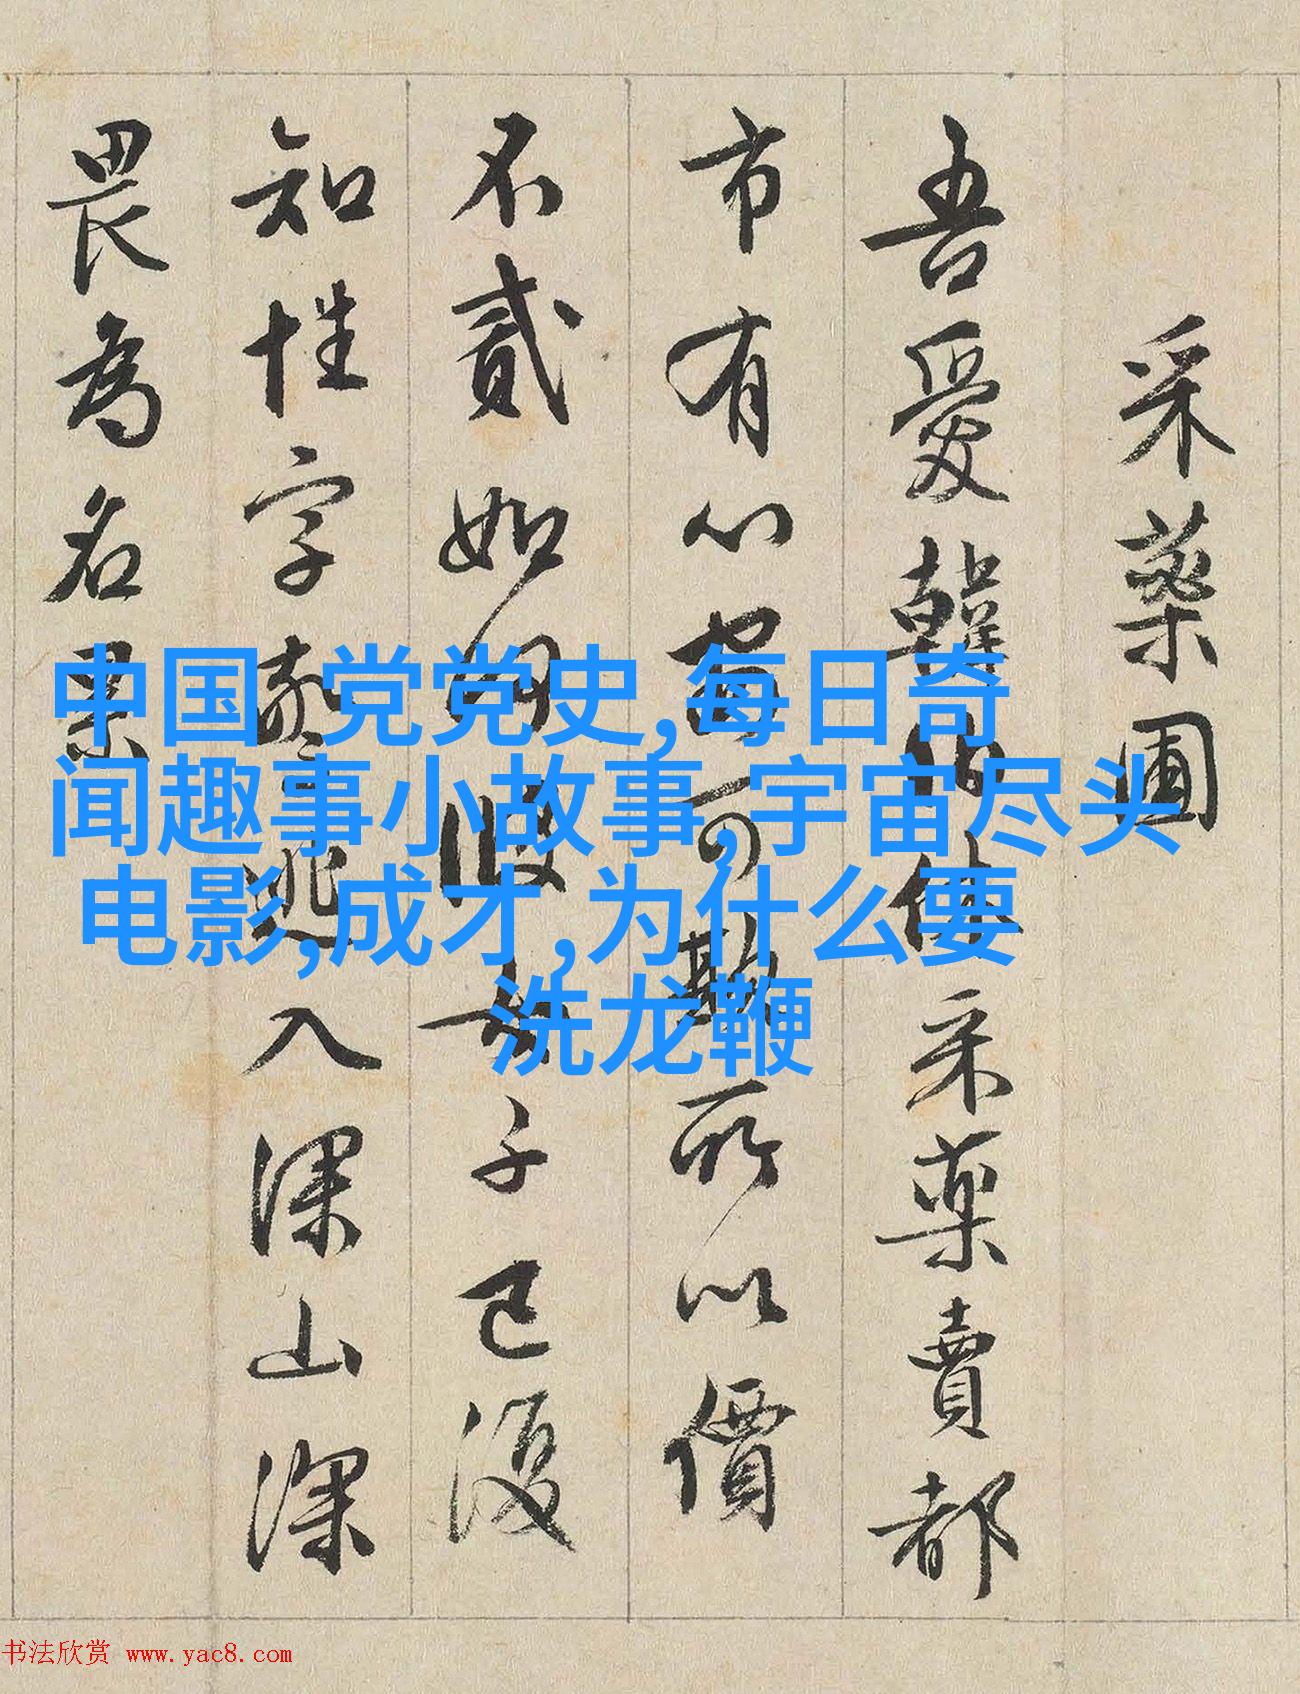 采藥圃
吾愛韓伯休采藥賣都
市有心可欺所以價
不貳如何女子已復
知性字驚逃入深山深
畏為名累
中国 党党史,每日奇
闻趣事小故事,宇宙尽头
电影,成才,为什么要
洗龙鞭
书法欣赏 www.yac8.com